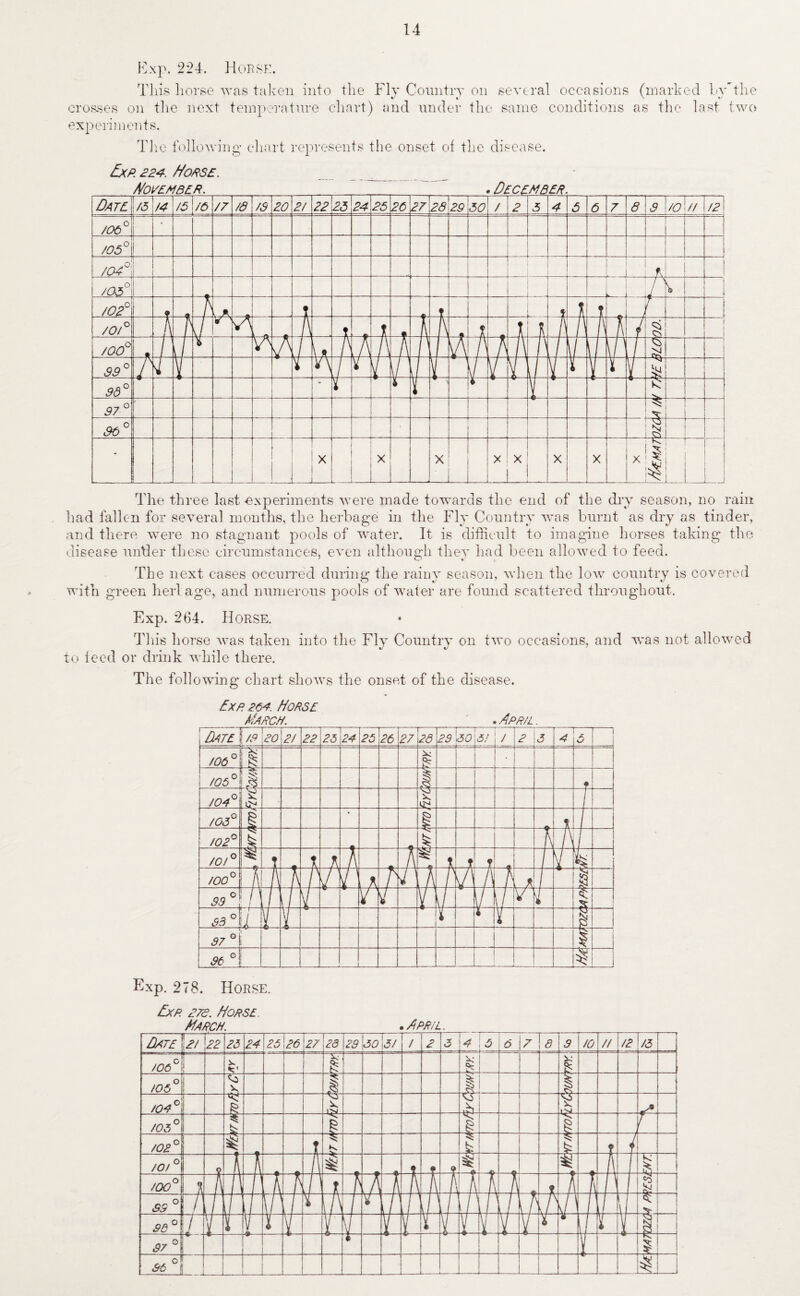 14
Exp. 224. Horse.
This horse was taken into the Fly Country on several occasions (marked by the
crosses on the next temperature chart) and under the same conditions as the last two
experiments.
The following chart represents the onset of the disease.
Exp. 224. Horse.
November. . December.
Date 13 14 15 16 17 18 19 20 21 22 23 24 25 26 27 28 29 30 1 2 3 4 5 6 7 8 9 10 11 12
106°
105°
104°
103°
102°
101°
100°
99°
98°
97°
96°
X X X X X X X X
Hæmatozoa in the blood.
The three last experiments were made towards the end of the dry season, no rain
had fallen for several months, the herbage in the Fly Country was burnt as dry as tinder,
and there were no stagnant pools of water. It is difficult to imagine horses taking the
disease under these circumstances, even although they had been allowed to feed.
The next cases occurred during the rainy season, when the low country is covered
with green herbage, and numerous pools of water are found scattered throughout.
Exp. 264. Horse.
This horse was taken into the Fly Country on two occasions, and was not allowed
to feed or drink while there.
The following chart shows the onset of the disease.
Exp. 264. Horse
March. . April.
Date 19 20 21 22 23 24 25 26 27 28 29 30 31 1 2 3 4 5
106°
105°
104°
103°
102°
101°
100°
99°
98°
97°
96°
Went into Fly Country.
Went into Fly Country.
Hæmatozoa present.
Exp. 278. Horse.
Exp. 278. Horse.
March. . April.
Date 21 22 23 24 25 26 27 28 29 30 31 1 2 3 4 5 6 7 8 9 10 11 12 13
106°
105°
104°
103°
102°
101°
100°
99°
98°
97°
96°
Went into Fly Cry.
Went into Fly Country.
Went into Fly Country.
Went into Fly Country.
Hæmatozoa present.